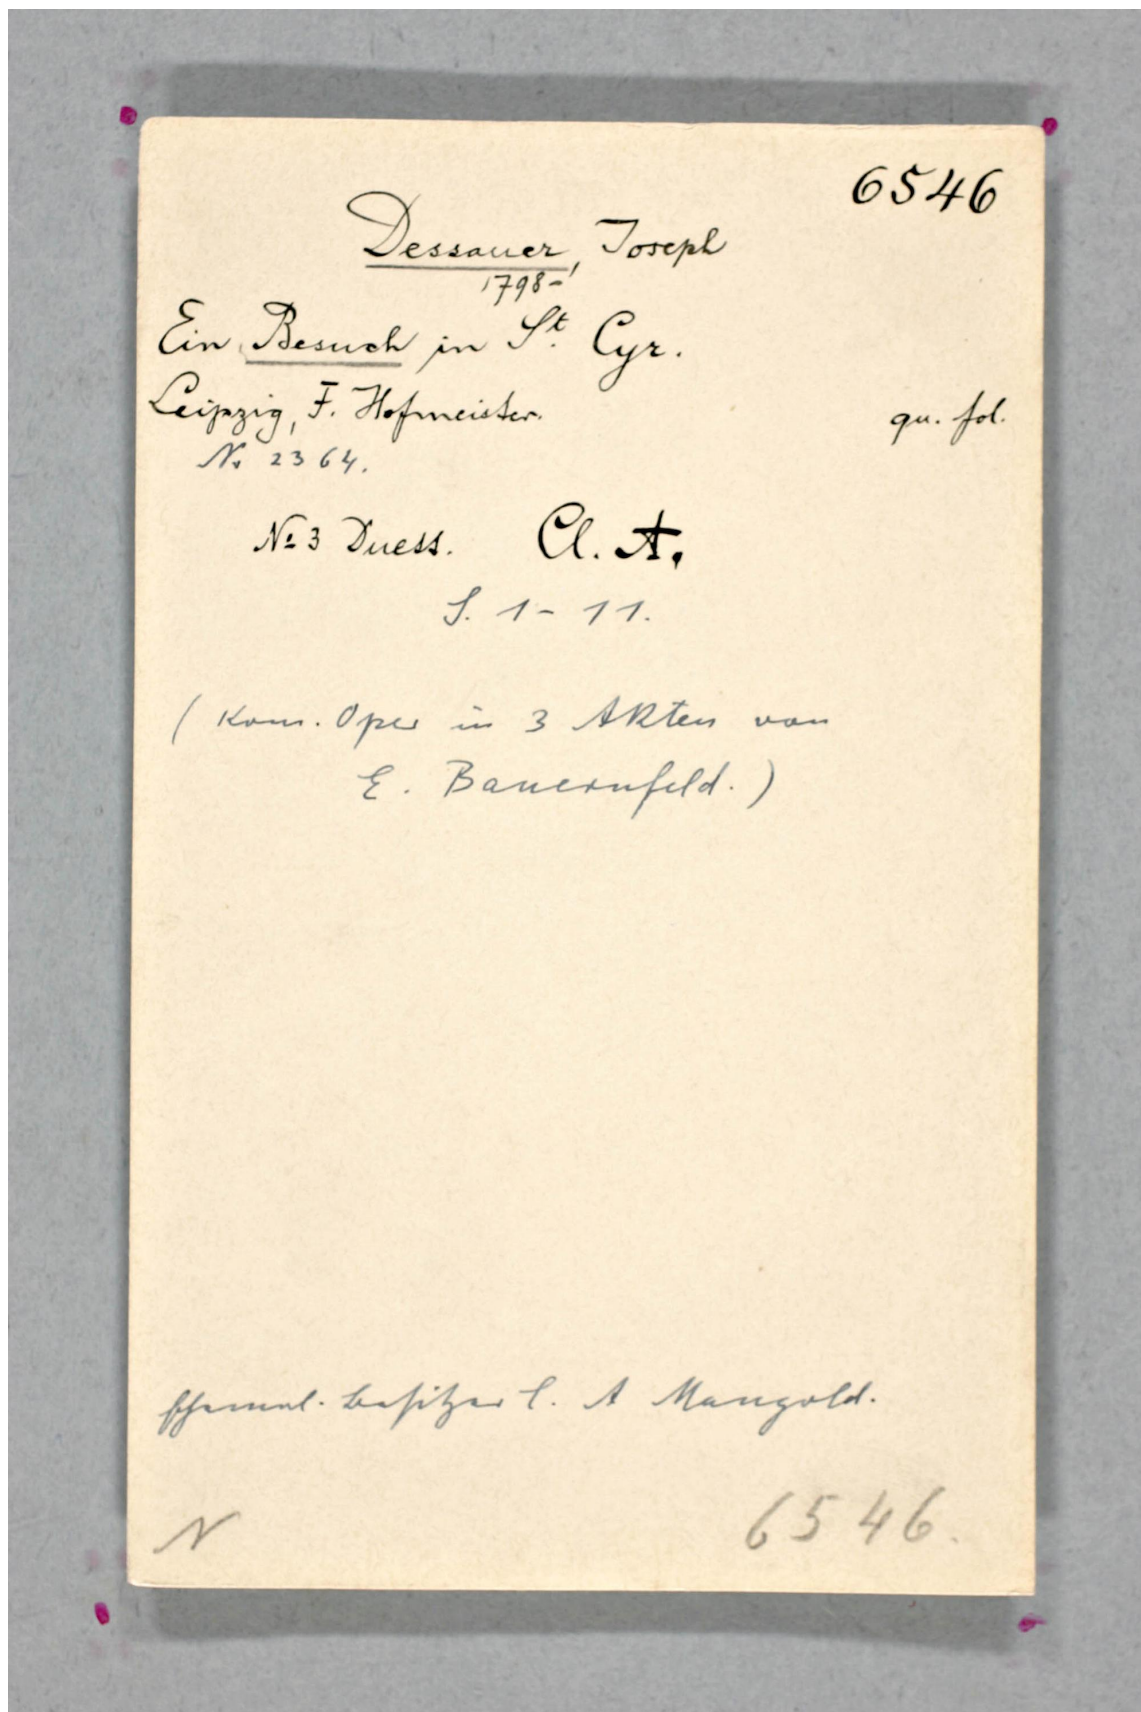 6546
Dessauer, Joseph
1798-
Ein Besuch in St. Cyr.
Leipzig, F. Hofmeister. qu. fol.
No 2364.
No 3 Duett. Cl. A.
S. 1 - 11.
( Kom. Oper in 3 Akten von
E. Bauernfeld. )
Ehemal. Besitzer C. A Mangold.
N 6546.